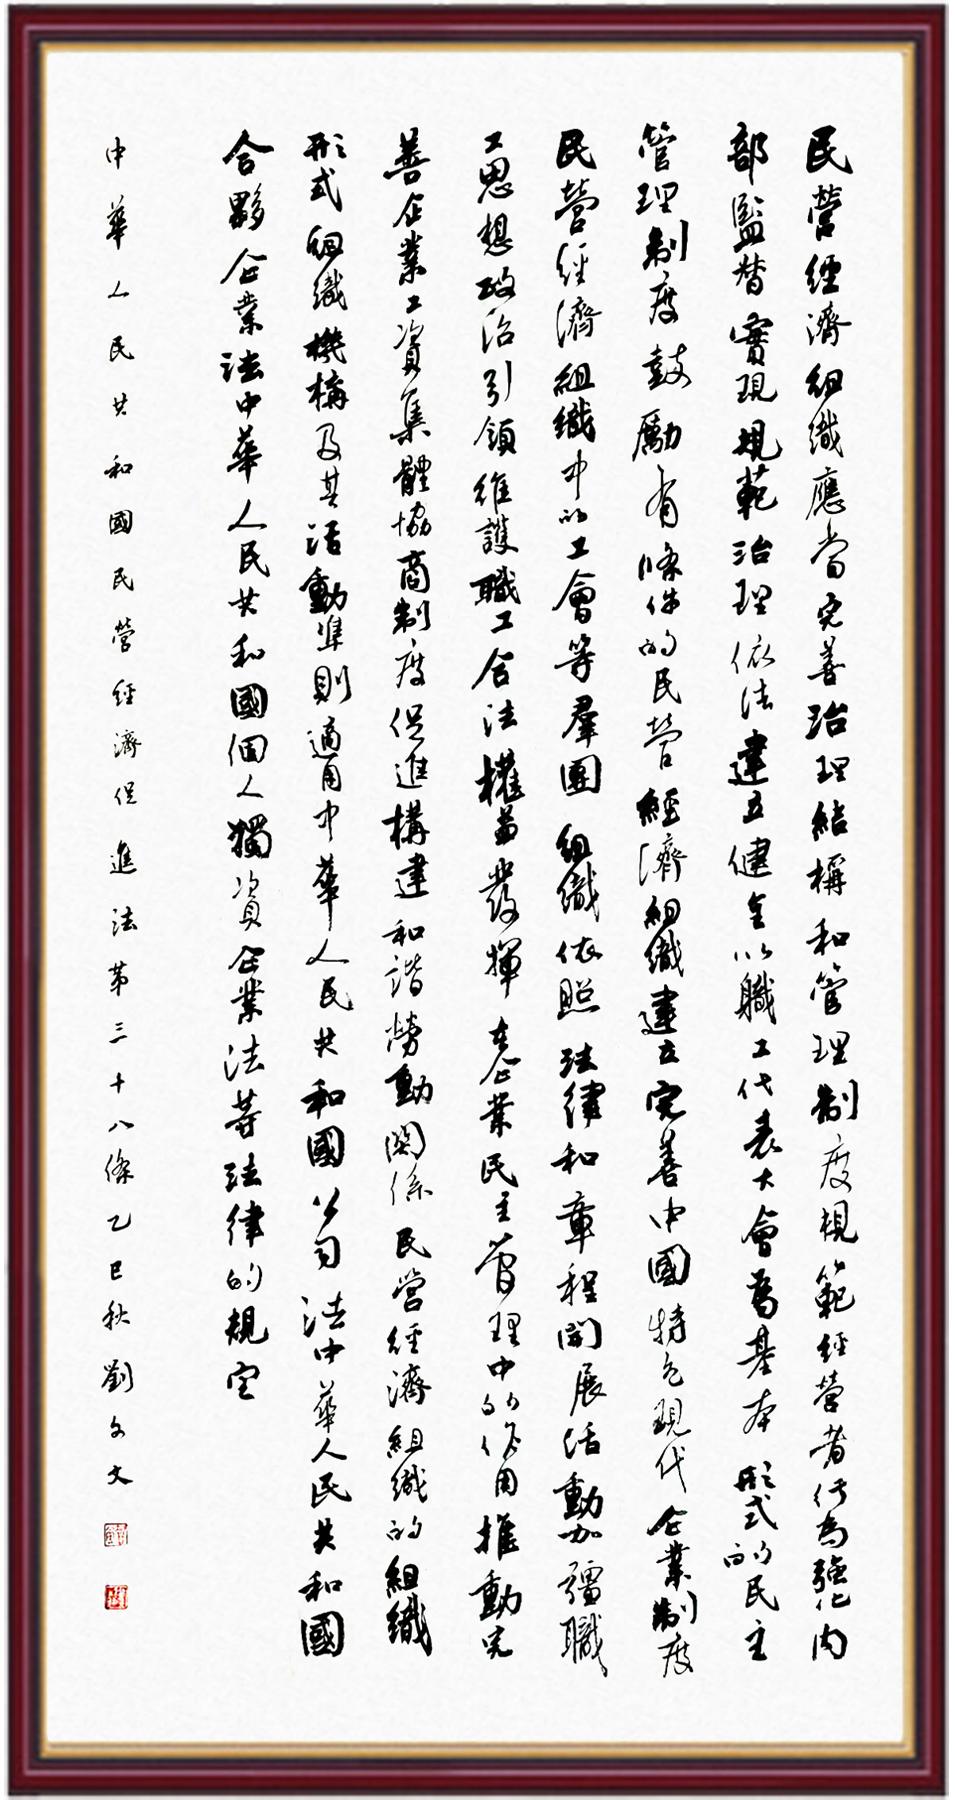 民營經濟組織應當完善治理結構和管理制度規範經營者行為強化內
部監督實現規範治理依法建立健全以職工代表大會為基本形式的民主
管理制度鼓勵有條件的民營經濟組織建立完善中國特色現代企業制度
民營經濟組織中的工會等羣團組織依照法律和章程開展活動加強職
工思想政治引領維護職工合法權益發揮在企業民主管理中的作用推動完
善企業工資集體協商制度促進構建和諧勞動關係民營經濟組織的組織
形式組織機構及其活動準則適用中華人民共和國公司法中華人民共和國
合夥企業法中華人民共和國個人獨資企業法等法律的規定
中華人民共和國民營經濟促進法第三十八條乙巳秋劉文